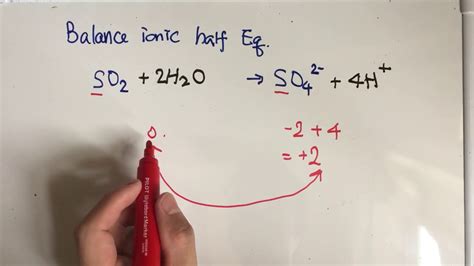 Balance ionic half Eq.
SO₂ + 2H₂O → SO₄²⁻ + 4H⁺
0. -2 + 4
= +2
PILOT